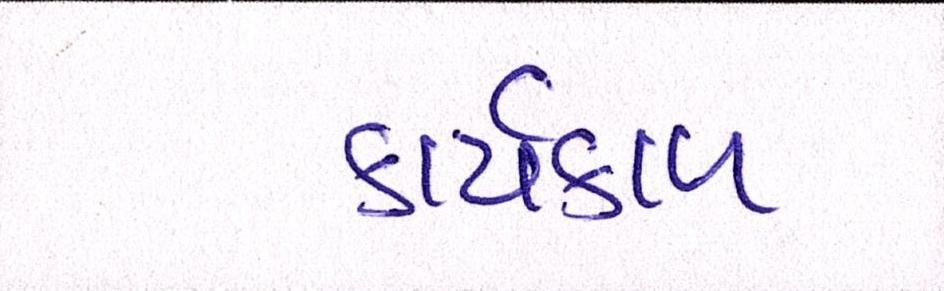 કાર્યકાળ